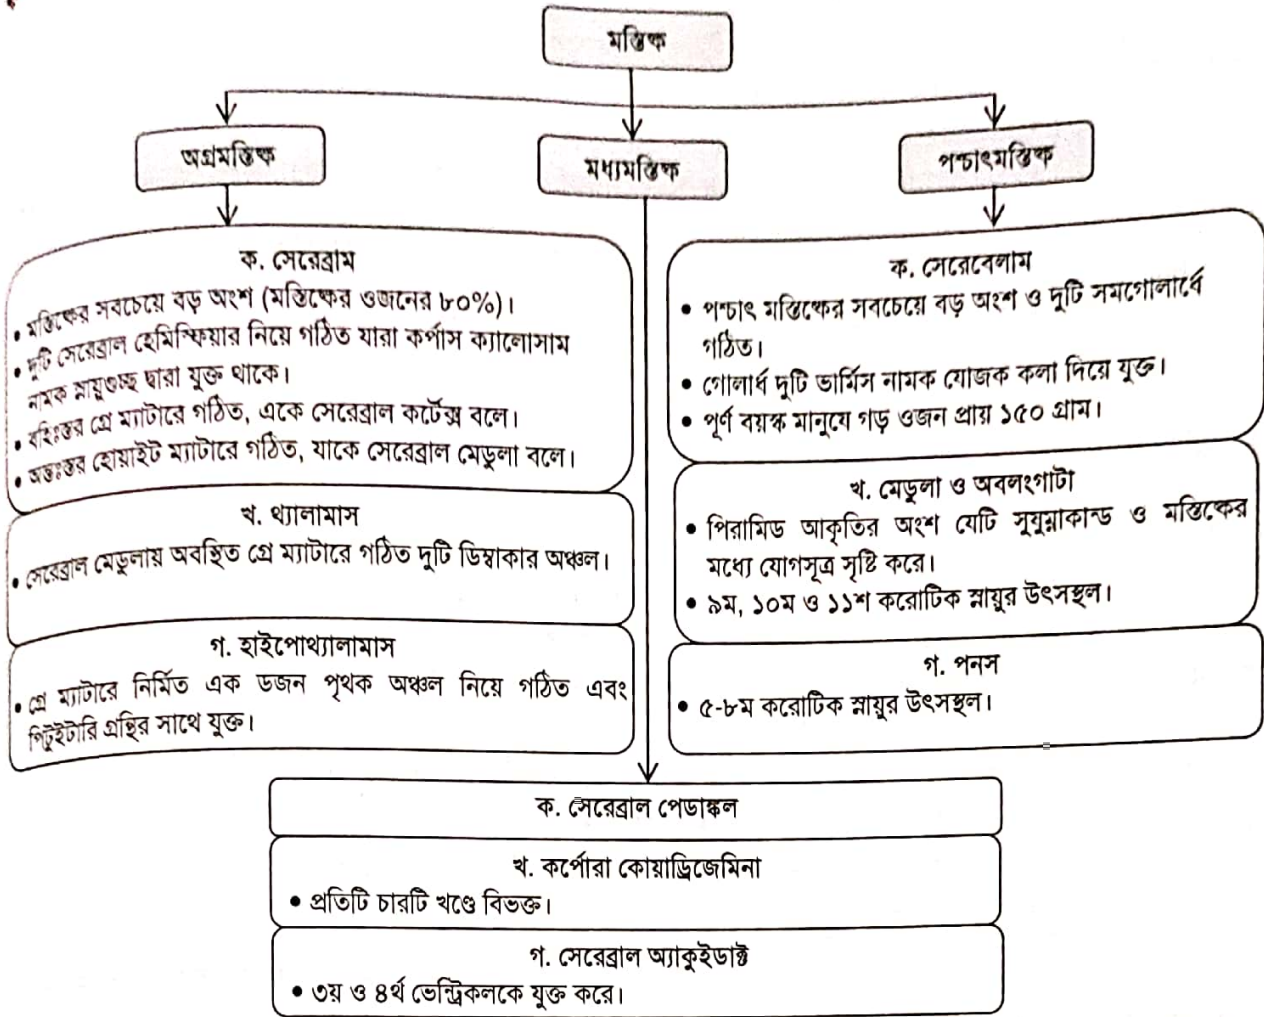 মস্তিষ্ক
অগ্রমস্তিষ্ক
মধ্যমস্তিষ্ক
পশ্চাৎমস্তিষ্ক
ক. সেরেব্রাম
• মস্তিষ্কের সবচেয়ে বড় অংশ (মস্তিষ্কের ওজনের ৮০%)।
• দুটি সেরেব্রাল হেমিস্ফিয়ার নিয়ে গঠিত যারা কর্পাস ক্যালোসাম
নামক স্নায়ুগুচ্ছ দ্বারা যুক্ত থাকে।
• বহিঃস্তর গ্রে ম্যাটারে গঠিত, একে সেরেব্রাল কর্টেক্স বলে।
• অন্তঃস্তর হোয়াইট ম্যাটারে গঠিত, যাকে সেরেব্রাল মেডুলা বলে।
খ. থ্যালামাস
• সেরেব্রাল মেডুলায় অবস্থিত গ্রে ম্যাটারে গঠিত দুটি ডিম্বাকার অঞ্চল।
গ. হাইপোথ্যালামাস
• গ্রে ম্যাটারে নির্মিত এক ডজন পৃথক অঞ্চল নিয়ে গঠিত এবং
পিটুইটারি গ্রন্থির সাথে যুক্ত।
ক. সেরেবেলাম
• পশ্চাৎ মস্তিষ্কের সবচেয়ে বড় অংশ ও দুটি সমগোলার্ধে
গঠিত।
• গোলার্ধ দুটি ভার্মিস নামক যোজক কলা দিয়ে যুক্ত।
• পূর্ণ বয়স্ক মানুষে গড় ওজন প্রায় ১৫০ গ্রাম।
খ. মেডুলা ও অবলংগাটা
• পিরামিড আকৃতির অংশ যেটি সুষুম্নাকান্ড ও মস্তিষ্কের
মধ্যে যোগসূত্র সৃষ্টি করে।
• ৯ম, ১০ম ও ১১শ করোটিক স্নায়ুর উৎসস্থল।
গ. পনস
• ৫-৮ম করোটিক স্নায়ুর উৎসস্থল।
ক. সেরেব্রাল পেডাঙ্কল
খ. কর্পোরা কোয়াড্রিজেমিনা
• প্রতিটি চারটি খণ্ডে বিভক্ত।
গ. সেরেব্রাল অ্যাকুইডাক্ট
• ৩য় ও ৪র্থ ভেন্ট্রিকলকে যুক্ত করে।